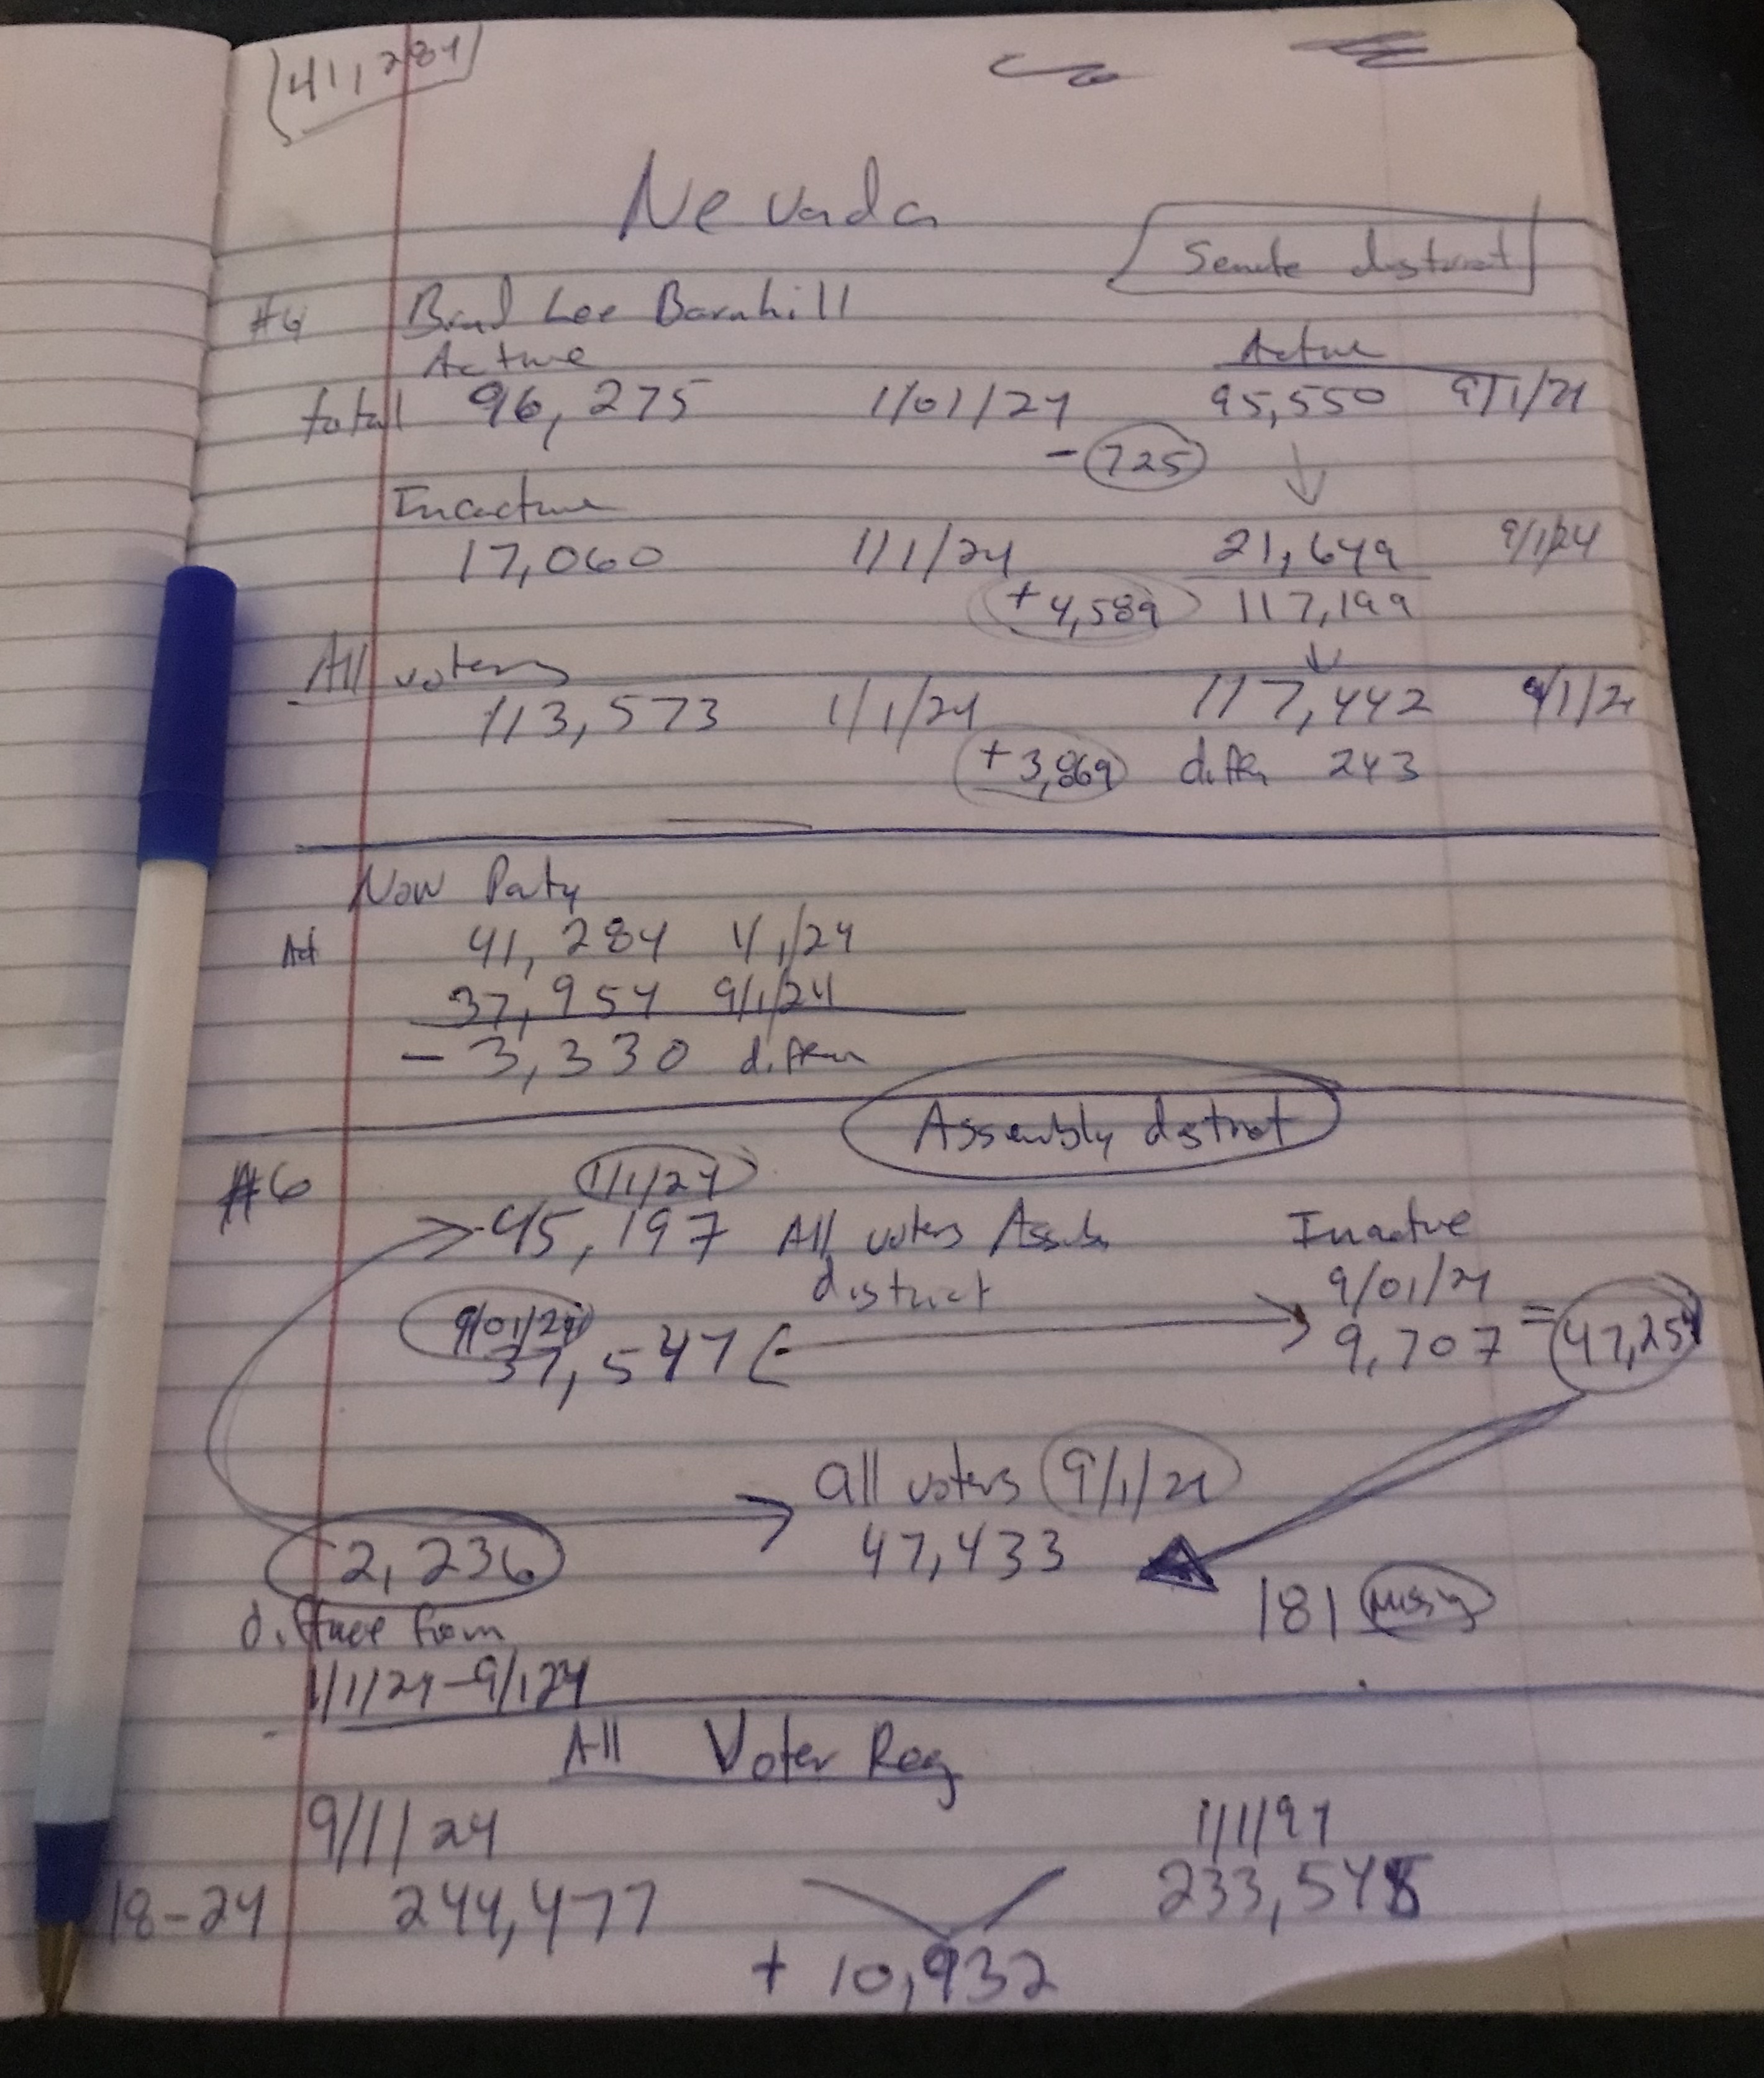 41,284
Nevada
Senate district
#6 Brad Lee Barnhill
Active Active
total 96,275 1/01/24 95,550 9/1/24
- 725
Inactive
17,060 1/1/24 21,649 9/1/24
+4,589 117,199
All voters
113,573 1/1/24 117,442 9/1/24
+3,869 differ 243
Non Party
Act 41,284 1/1/24
37,954 9/1/24
- 3,330 differ
Assembly district
#6 1/1/24
45,197 All voters Assembly Inactive
district 9/01/24
9/01/24
37,547 9,707 = 47,254
all voters 9/1/24
2,236 47,433
181 missing
differ from
1/1/24-9/1/24
All Voter Reg
9/1/24 1/1/24
18-24 244,477 233,545
+ 10,932